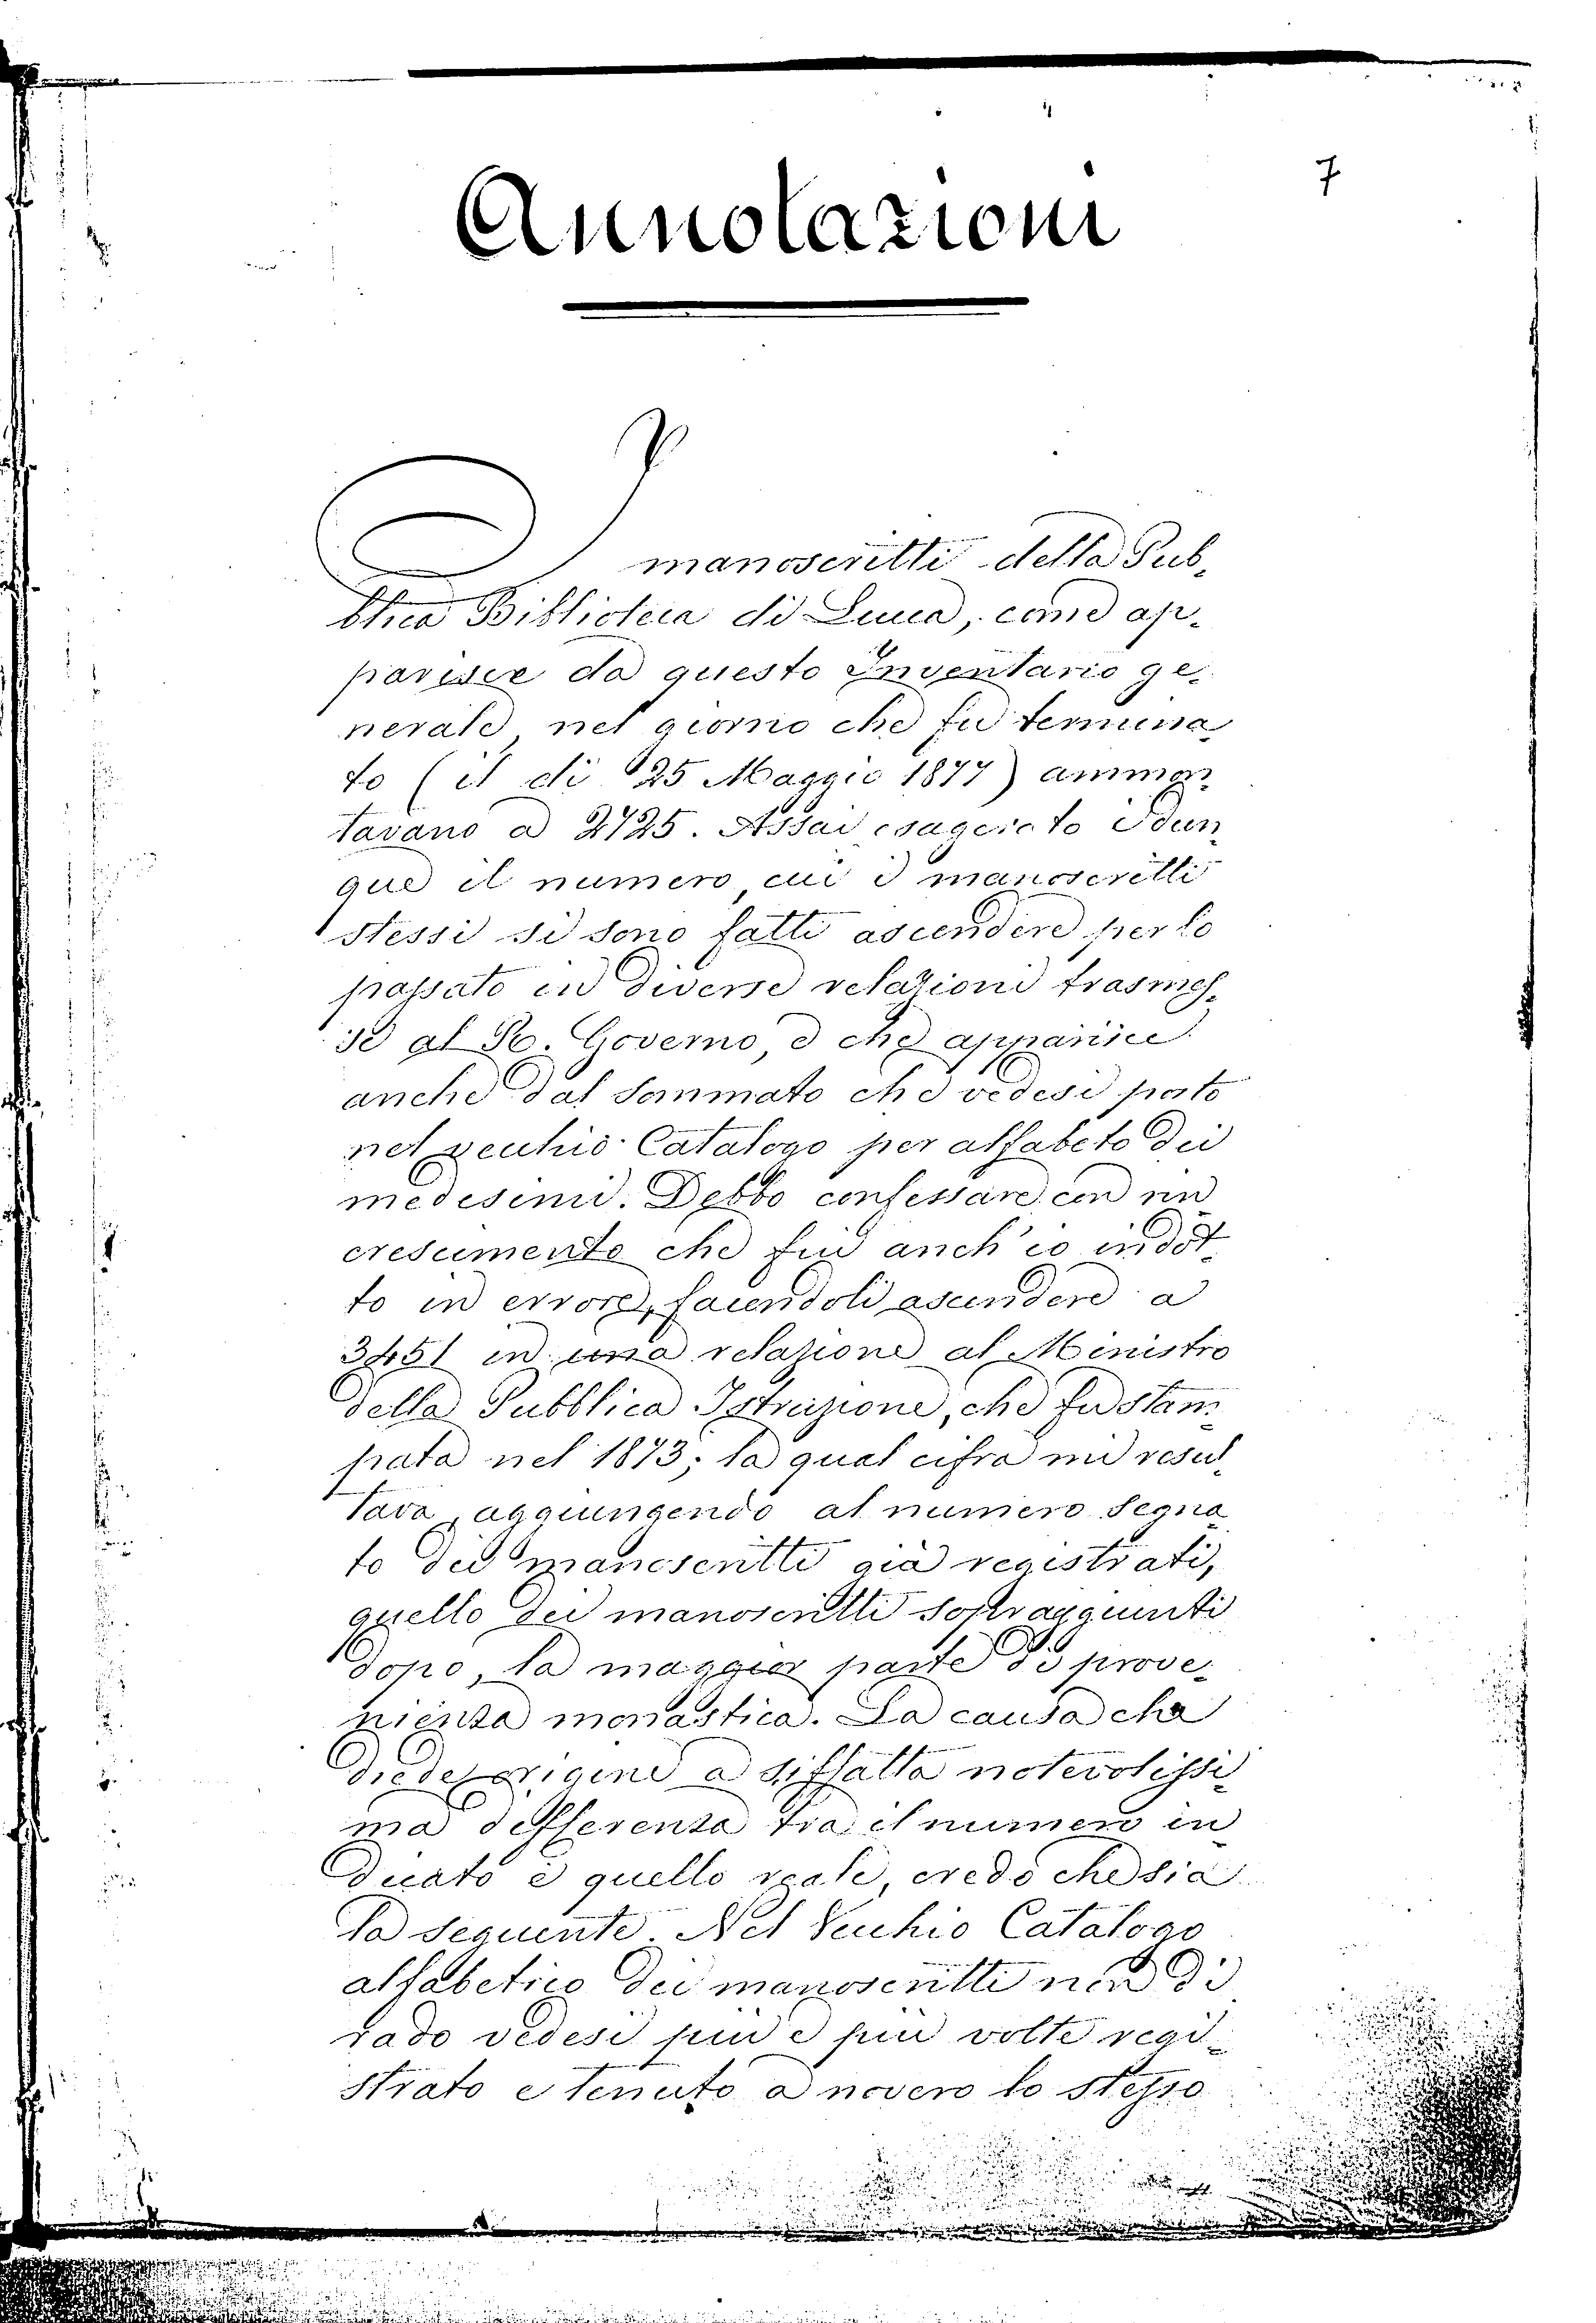 7
Annotazioni
I manoscritti della Pub-
blica Biblioteca di Lucca, come ap-
parisce da questo Inventario ge-
nerale, nel giorno che fu termina-
to (il dì 25 Maggio 1877) ammon-
tavano a 2725. Assai esagerato è dun-
que il numero, cui i manoscritti
stessi si sono fatti ascendere per lo
passato in diverse relazioni trasmes-
se al R. Governo, e che apparisce
anche dal sommato che vedesi posto
nel vecchio Catalogo per alfabeto dei
medesimi. Debbo confessare con rin-
crescimento che fui anch'io indot-
to in errore, facendoli ascendere a
3451 in una relazione al Ministro
della Pubblica Istruzione, che fu stam-
pata nel 1873; la qual cifra mi resul-
tava, aggiungendo al numero segna-
to dei manoscritti già registrati,
quello dei manoscritti sopraggiunti
dopo, la maggior parte di prove-
nienza monastica. La causa che
diede origine a siffatta notevolissi-
ma differenza tra il numero in-
dicato e quello reale, credo che sia
la seguente. Nel Vecchio Catalogo
alfabetico dei manoscritti non di
rado vedesi più e più volte regi-
strato e tenuto a novero lo stesso